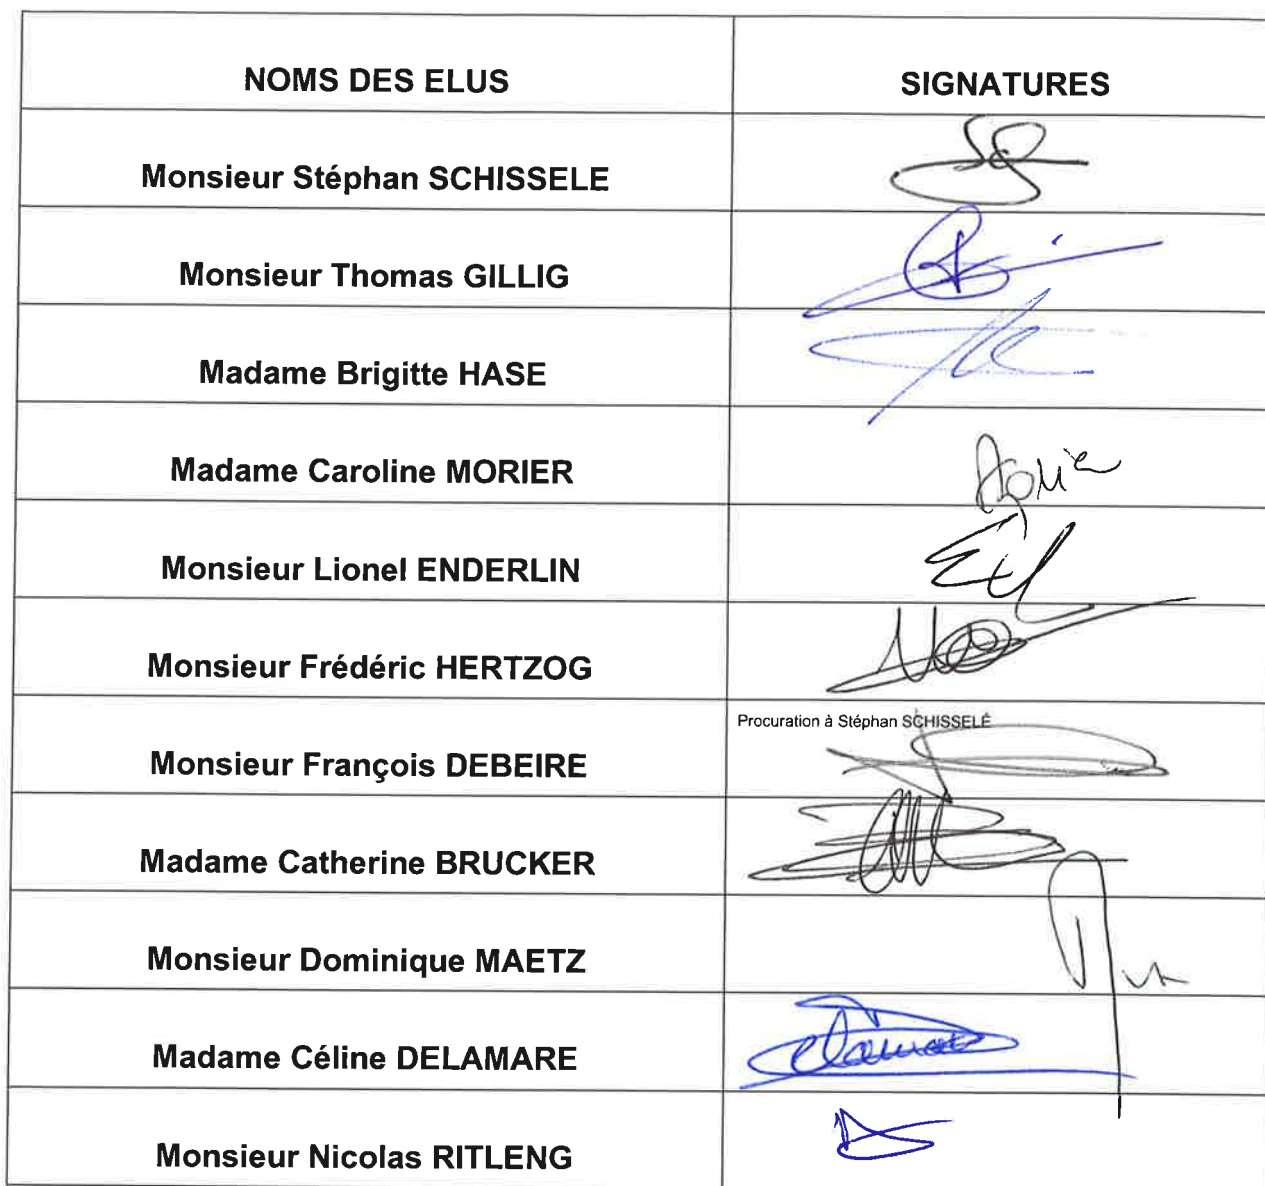 NOMS DES ELUS
SIGNATURES
Monsieur Stéphan SCHISSELE
Monsieur Thomas GILLIG
Madame Brigitte HASE
Madame Caroline MORIER
Monsieur Lionel ENDERLIN
Monsieur Frédéric HERTZOG
Monsieur François DEBEIRE
Procuration à Stéphan SCHISSELÉ
Madame Catherine BRUCKER
Monsieur Dominique MAETZ
Madame Céline DELAMARE
Monsieur Nicolas RITLENG